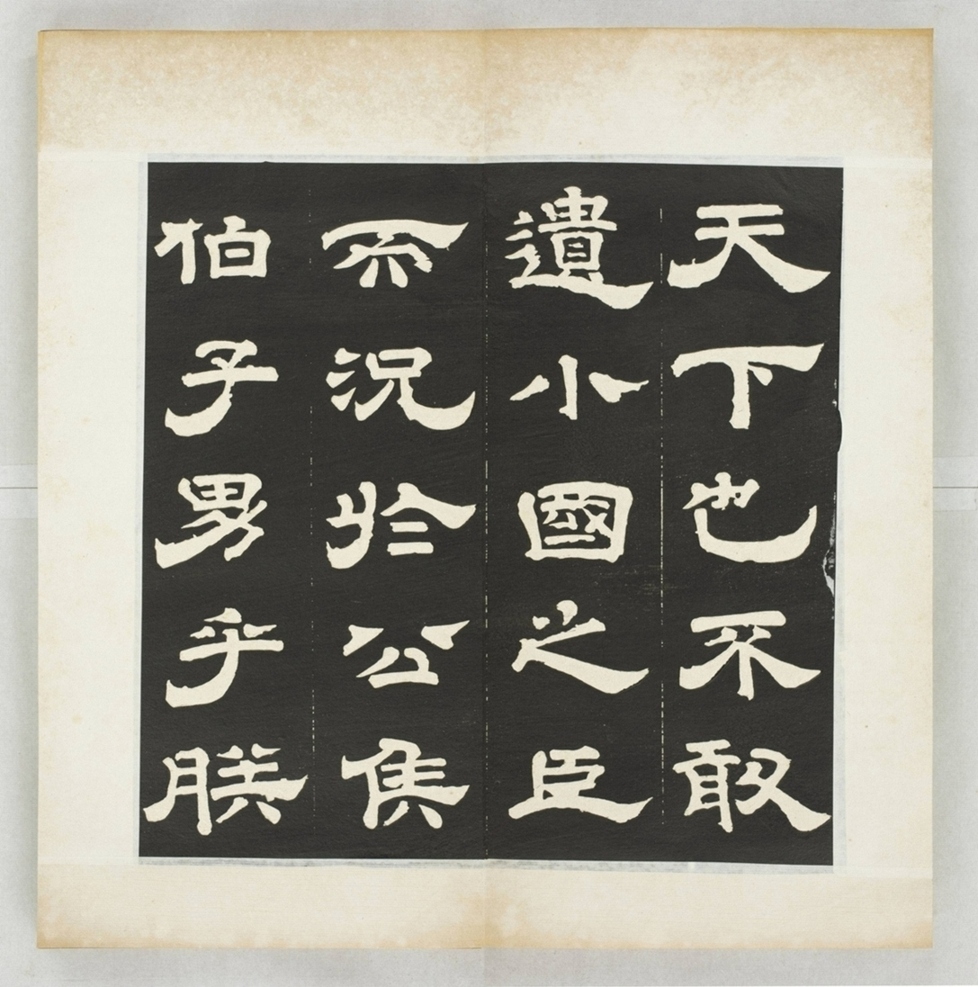 天下也不敢
遺小國之臣
而況於公侯
伯子男乎朕